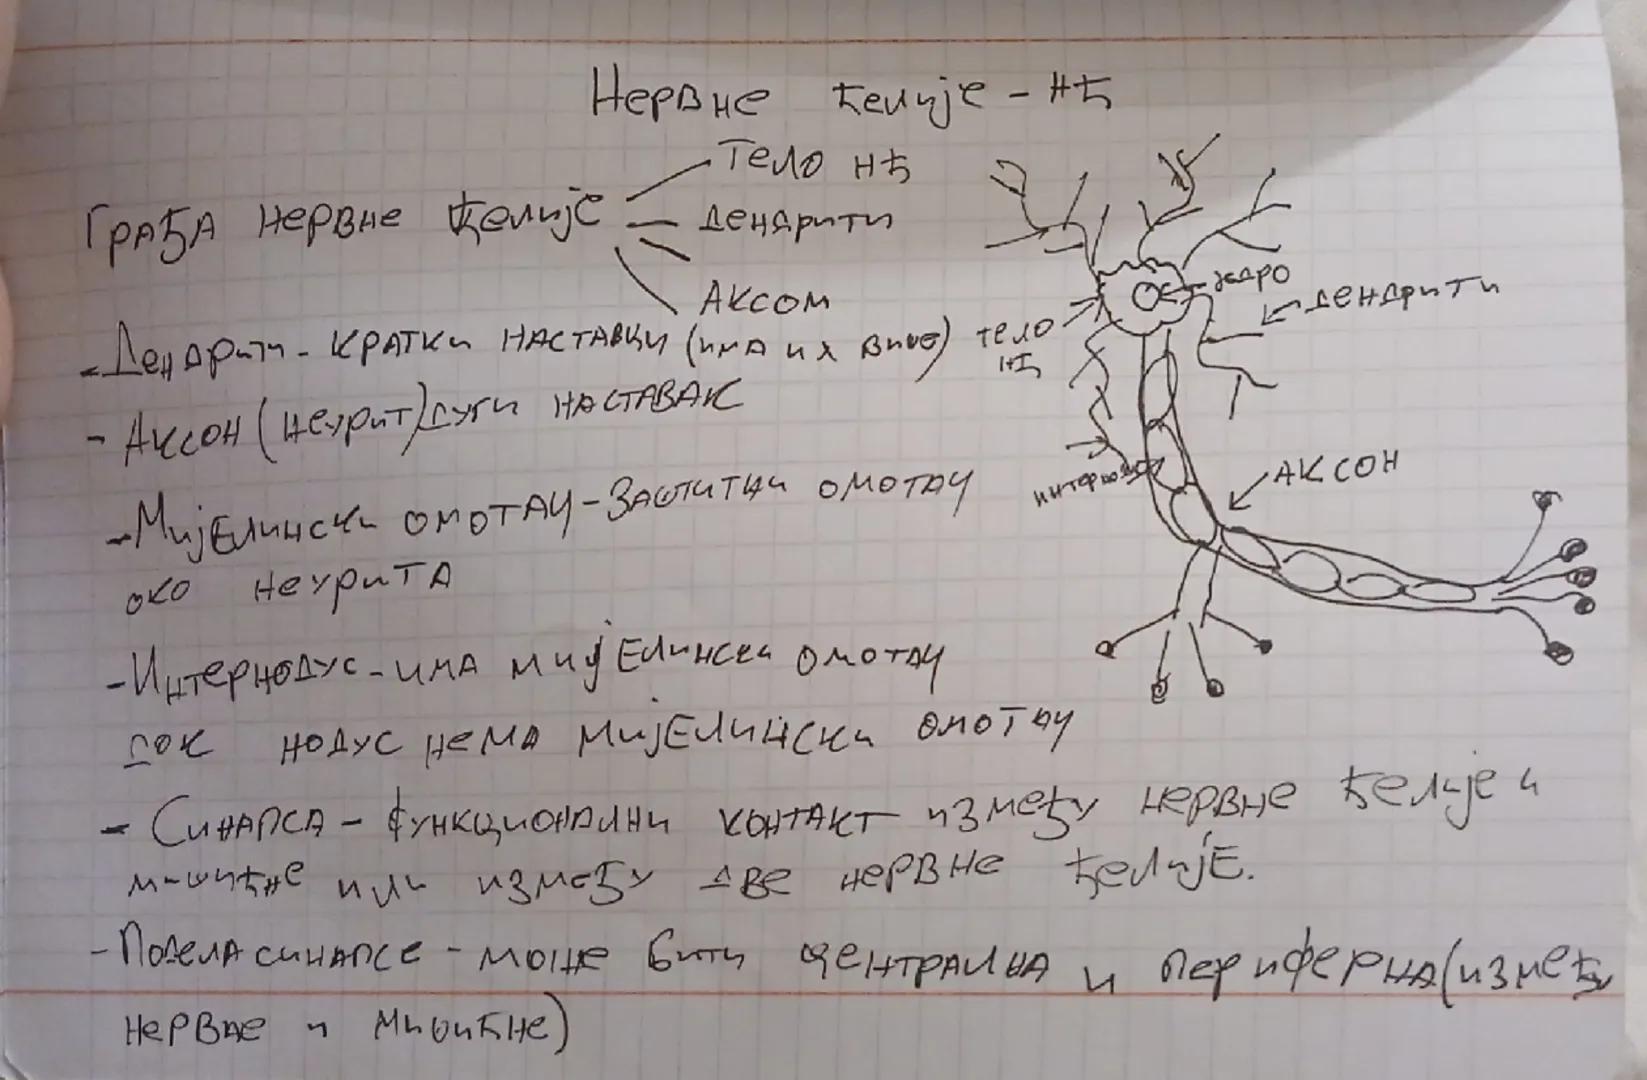 Нервне ћелије - НЋ
Тело НЋ
Грађа нервне ћелије
Дендрити
Аксом
- Дендрити - кратки наставци (има их више)
- Аксон (неурит) дуги наставак
- Мијелински омотач - Заштитни омотач
око неурита
- Интернодус - има мијелински омотач
док нодус нема мијелински омотач
- Синапса - функционални контакт између нервне ћелије и
мишићне или између две нервне ћелије.
- Подела синапсе - може бити централна и периферна (између
нервне и мишићне)
једро
дендрити
тело
НЋ
интернодус
Аксон